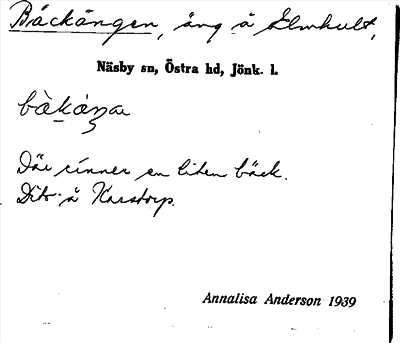 Bäckängen, äng å Elmhult,
Näsby sn, Östra hd, Jönk. l.
Där rinner en liten bäck.
Dito å Karstorp.
Annalisa Anderson 1939